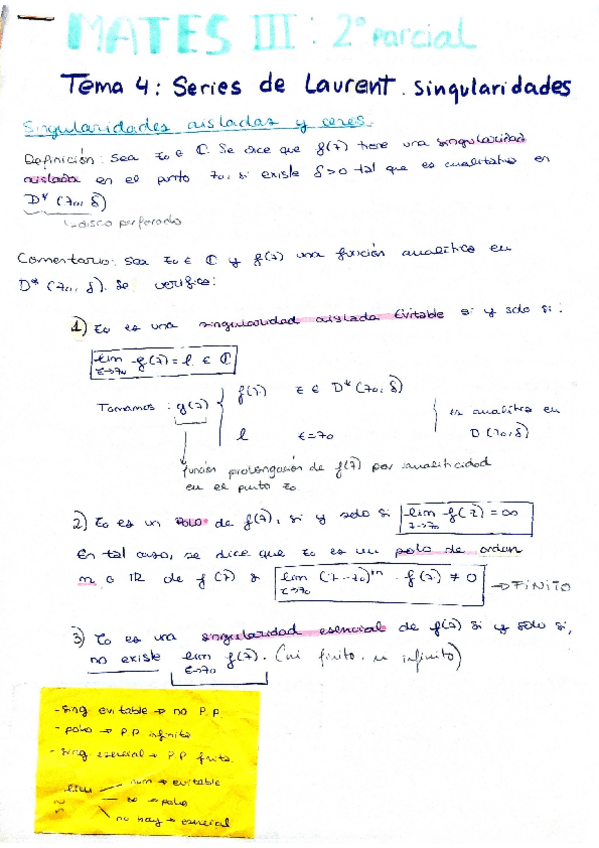 MATES III: 2º parcial
Tema 4: Series de Laurent. Singularidades
Singularidades aisladas y ceros.
Definición: Sea z₀ ∈ ℂ. Se dice que f(z) tiene una singularidad
aislada en el punto z₀, si existe δ>0 tal que es analítica en
D*(z₀, δ)
↳ disco perforado
Comentario: Sea z₀ ∈ ℂ y f(z) una función analítica en
D*(z₀, δ). Se verifica:
1) z₀ es una singularidad aislada Evitable si y solo si:
lim f(z) = l ∈ ℂ
z→z₀
Tomamos: g(z) { f(z) z ∈ D*(z₀, δ)
l z=z₀
es analítica en
D(z₀, δ)
función prolongación de f(z) por analiticidad
en el punto z₀.
2) z₀ es un Polo de f(z), si y solo si lim f(z) = ∞
z→z₀
En tal caso, se dice que z₀ es un polo de orden
m ∈ ℝ de f(z) si lim (z-z₀)ᵐ · f(z) ≠ 0 → FINITO
z→z₀
3) z₀ es una singularidad esencial de f(z) si y solo si,
no existe lim f(z). (ni finito, ni infinito)
z→z₀
- sing evitable → no P.P.
- polo → P.P infinita
- sing esencial → P.P finita.
lim num → evitable
∞ → polo
no hay → esencial